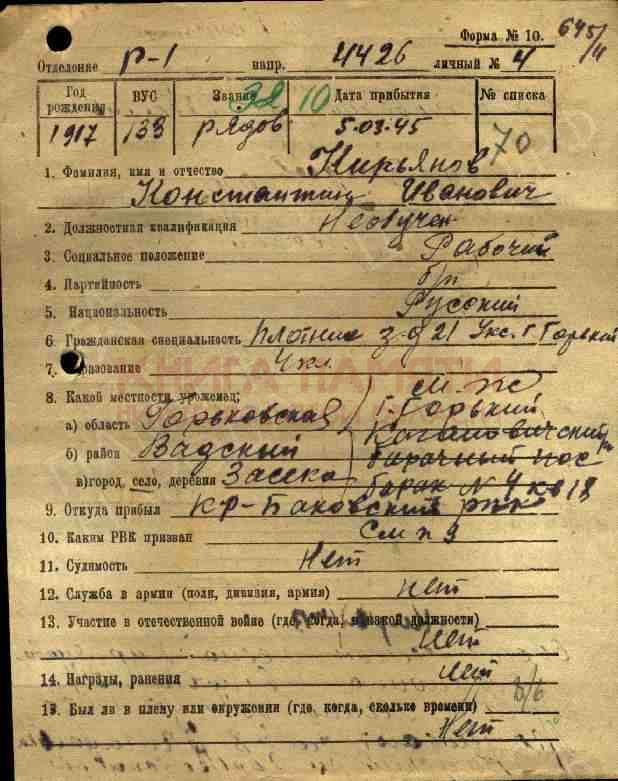 Форма № 10.
645/11
Отделение р-1 напр. 4426 личный № 4
Год рождения ВУС Звание 32 10 Дата прибытия № списка
1917 133 рядов 5.03.45 70
1. Фамилия, имя и отчество Кирьянов
Константин Иванович
2. Должностная квалификация Необучен
3. Социальное положение Рабочий
4. Партийность б/п
5. Национальность Русский
6 Гражданская специальность плотник з-д 21 г. Горький
7. Образование 4 кл.
КНИГА ПАМЯТИ
8. Какой местности уроженец;
а) область Горьковская г. Горький
б) района Вадский Кагановичский
в) город, село, деревня Засека барак № 4 кв 18
9. Откуда прибыл Кр-Баковский рвк
10. Каким РВК призван См п 9
11. Судимость Нет
12. Служба в армии (полк, дивизия, армия) нет
13. Участие в отечественной войне (где, когда, в какой должности)
Нет
14. Награды, ранения нет
15. Был ли в плену или окружении (где, когда, сколько времени)
Нет